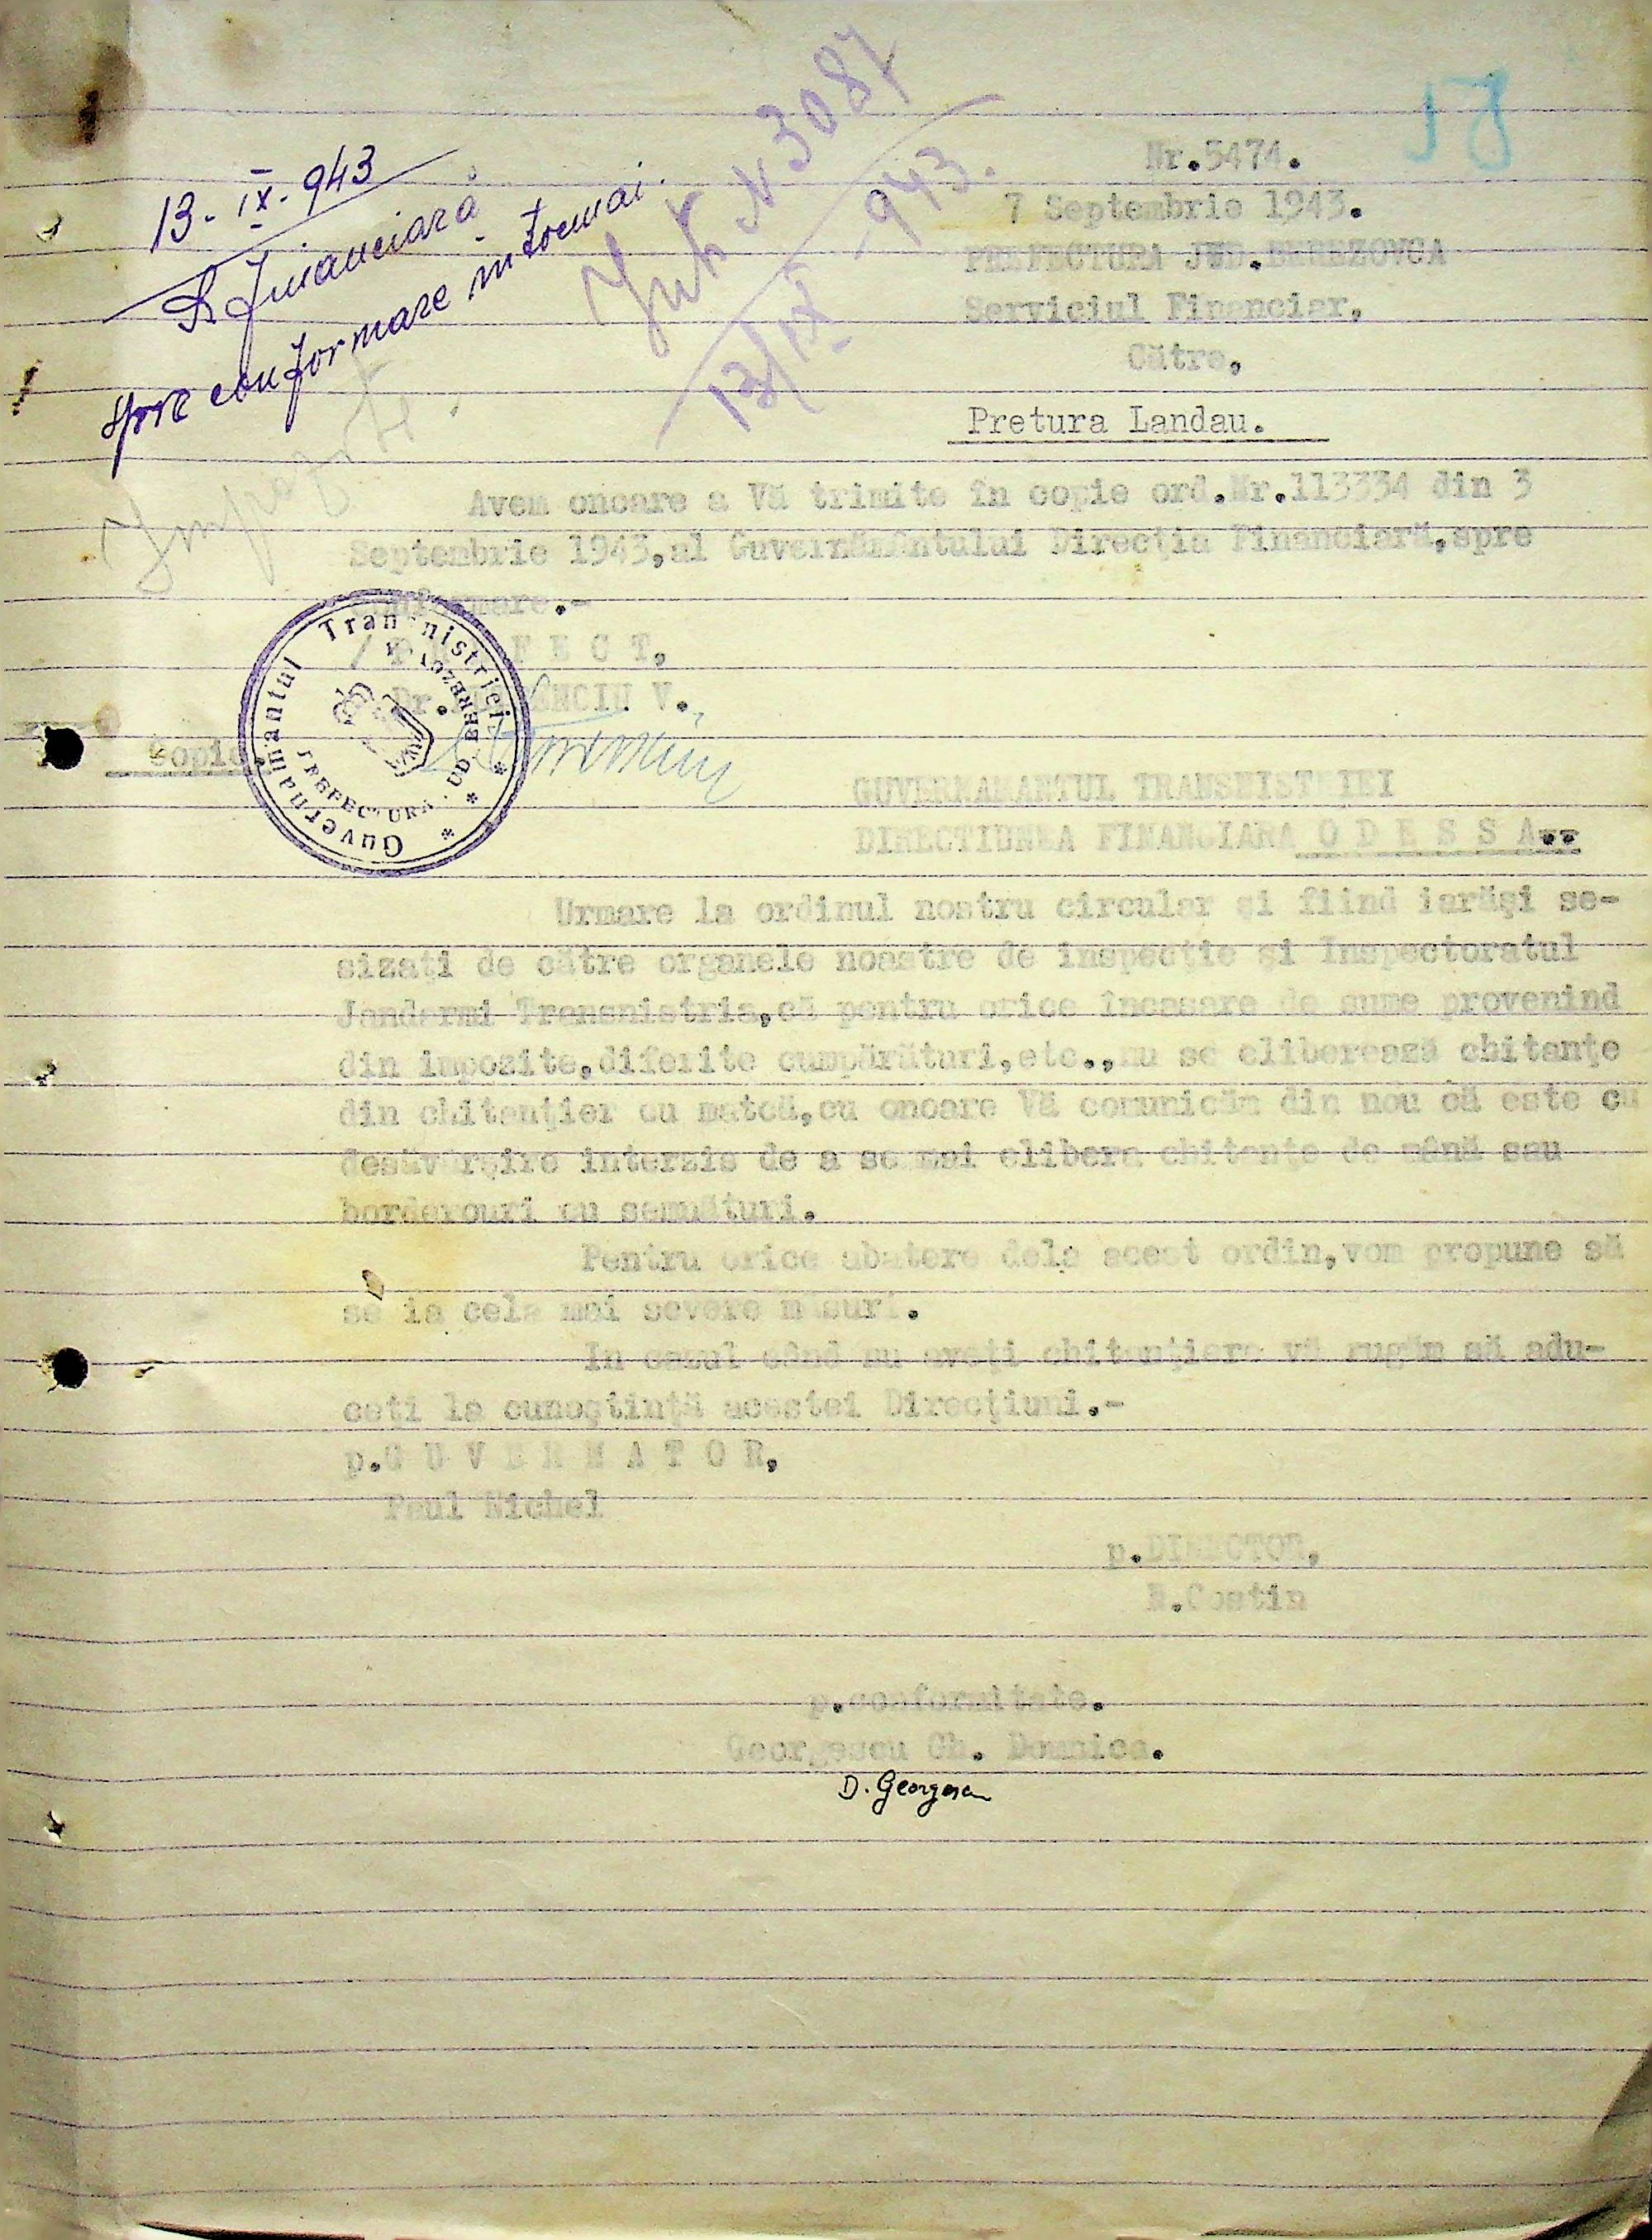 Nr.5474.
7 Septembrie 1943.
PREFECTURA JUD.BEREZOVCA
Serviciul Financiar,
Către,
Pretura Landau.
13-IX-943
S. Financiară
spre conformare întocmai.
Int. N 3087
13/IX 943.
Avem onoare a Vă trimite în copie ord.Nr.113334 din 3
Septembrie 1943,al Guvernământului Direcţia Financiară,spre
conformare.-
/ P R E F E C T,
Dr. V.
Guvernamantul Transnistriei
PREFECTURA JUD. BEREZOVCA
Copie.
GUVERNAMANTUL TRANSNISTRIEI
DIRECTIUNEA FINANCIARA O D E S S A--
Urmare la ordinul nostru circular şi fiind iarăşi se-
sizaţi de către organele noastre de inspecţie şi Inspectoratul
Jandarmi Transnistria,că pentru orice încasare de sume provenind
din impozite,diferite cumpărături,etc.,nu se eliberează chitanţe
din chitanţier cu matcă,cu onoare Vă comunicăm din nou că este cu
desăvârşire interzis de a se mai elibera chitanţe de mână sau
borderouri cu semnături.
Pentru orice abatere dela acest ordin,vom propune să
se ia cele mai severe măsuri.
In cazul când nu aveţi chitanţiere vă rugăm să adu-
ceţi la cunoştinţă acestei Direcţiuni.-
p.G U V E R N A T O R,
Paul Michel
p.DIRECTOR,
N.Costin
p.conformitate.
Georgescu Gh. Domnica.
D. Georgescu